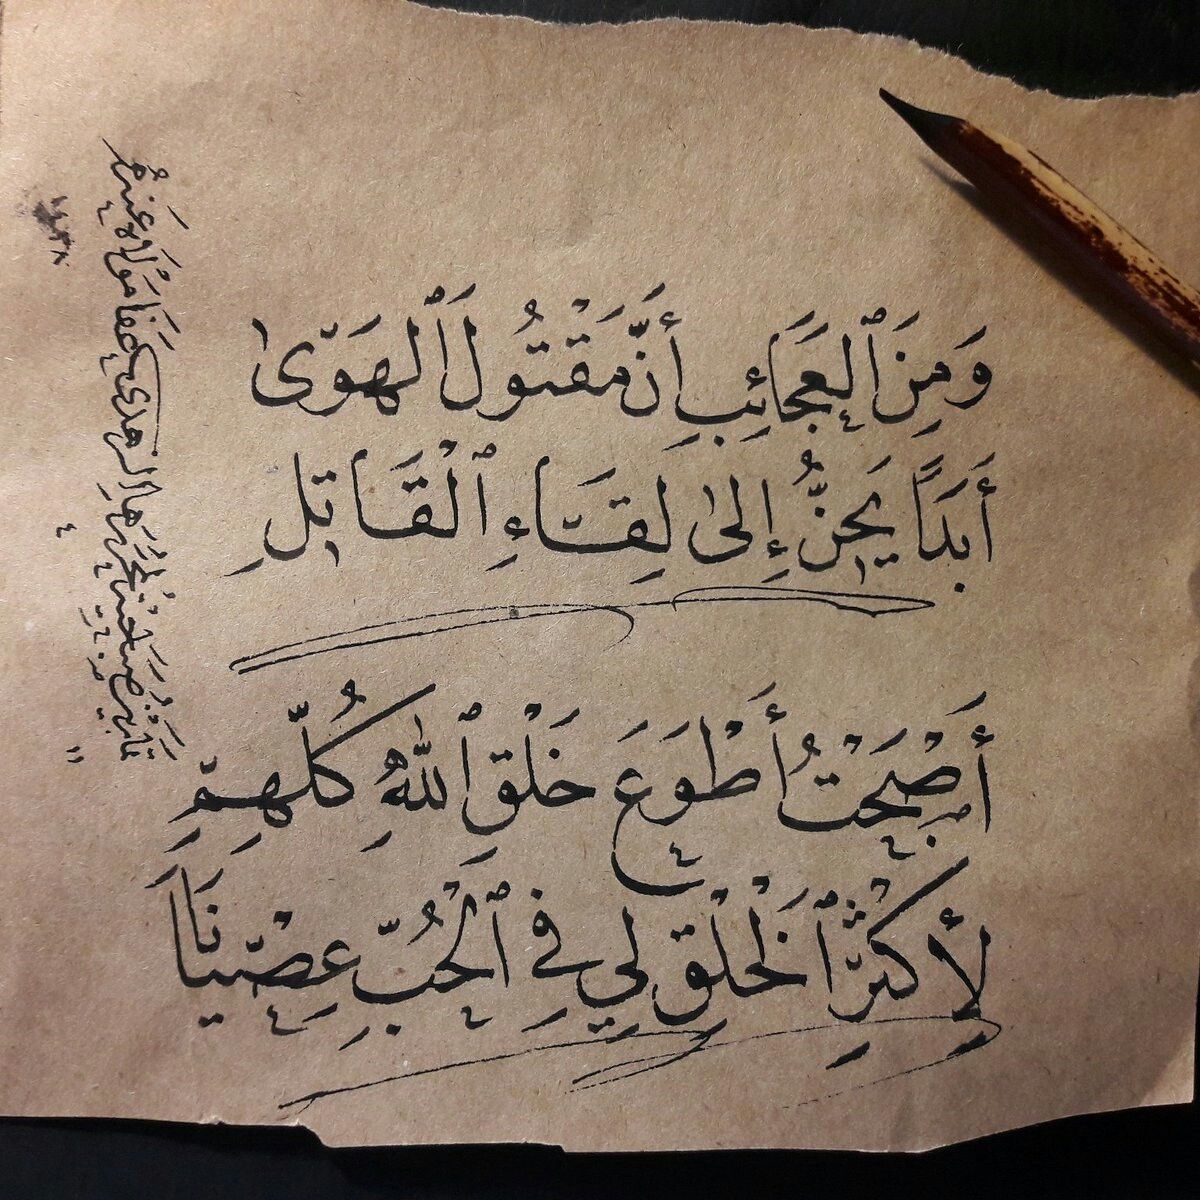 وَمِنَ ٱلْعَجَائِبِ أَنَّ مَقْتُولَ ٱلْهَوَىٰ
أَبَدًا يَحِنُّ إِلَىٰ لِقَاءِ ٱلْقَاتِلِ
أَصْبَحْتُ أَطْوَعَ خَلْقِ ٱللّٰهِ كُلِّهِمِ
لِأَكْثَرِ ٱلْخَلْقِ لِي فِي ٱلْحُبِّ عِصْيَانَا
١٤٣٨